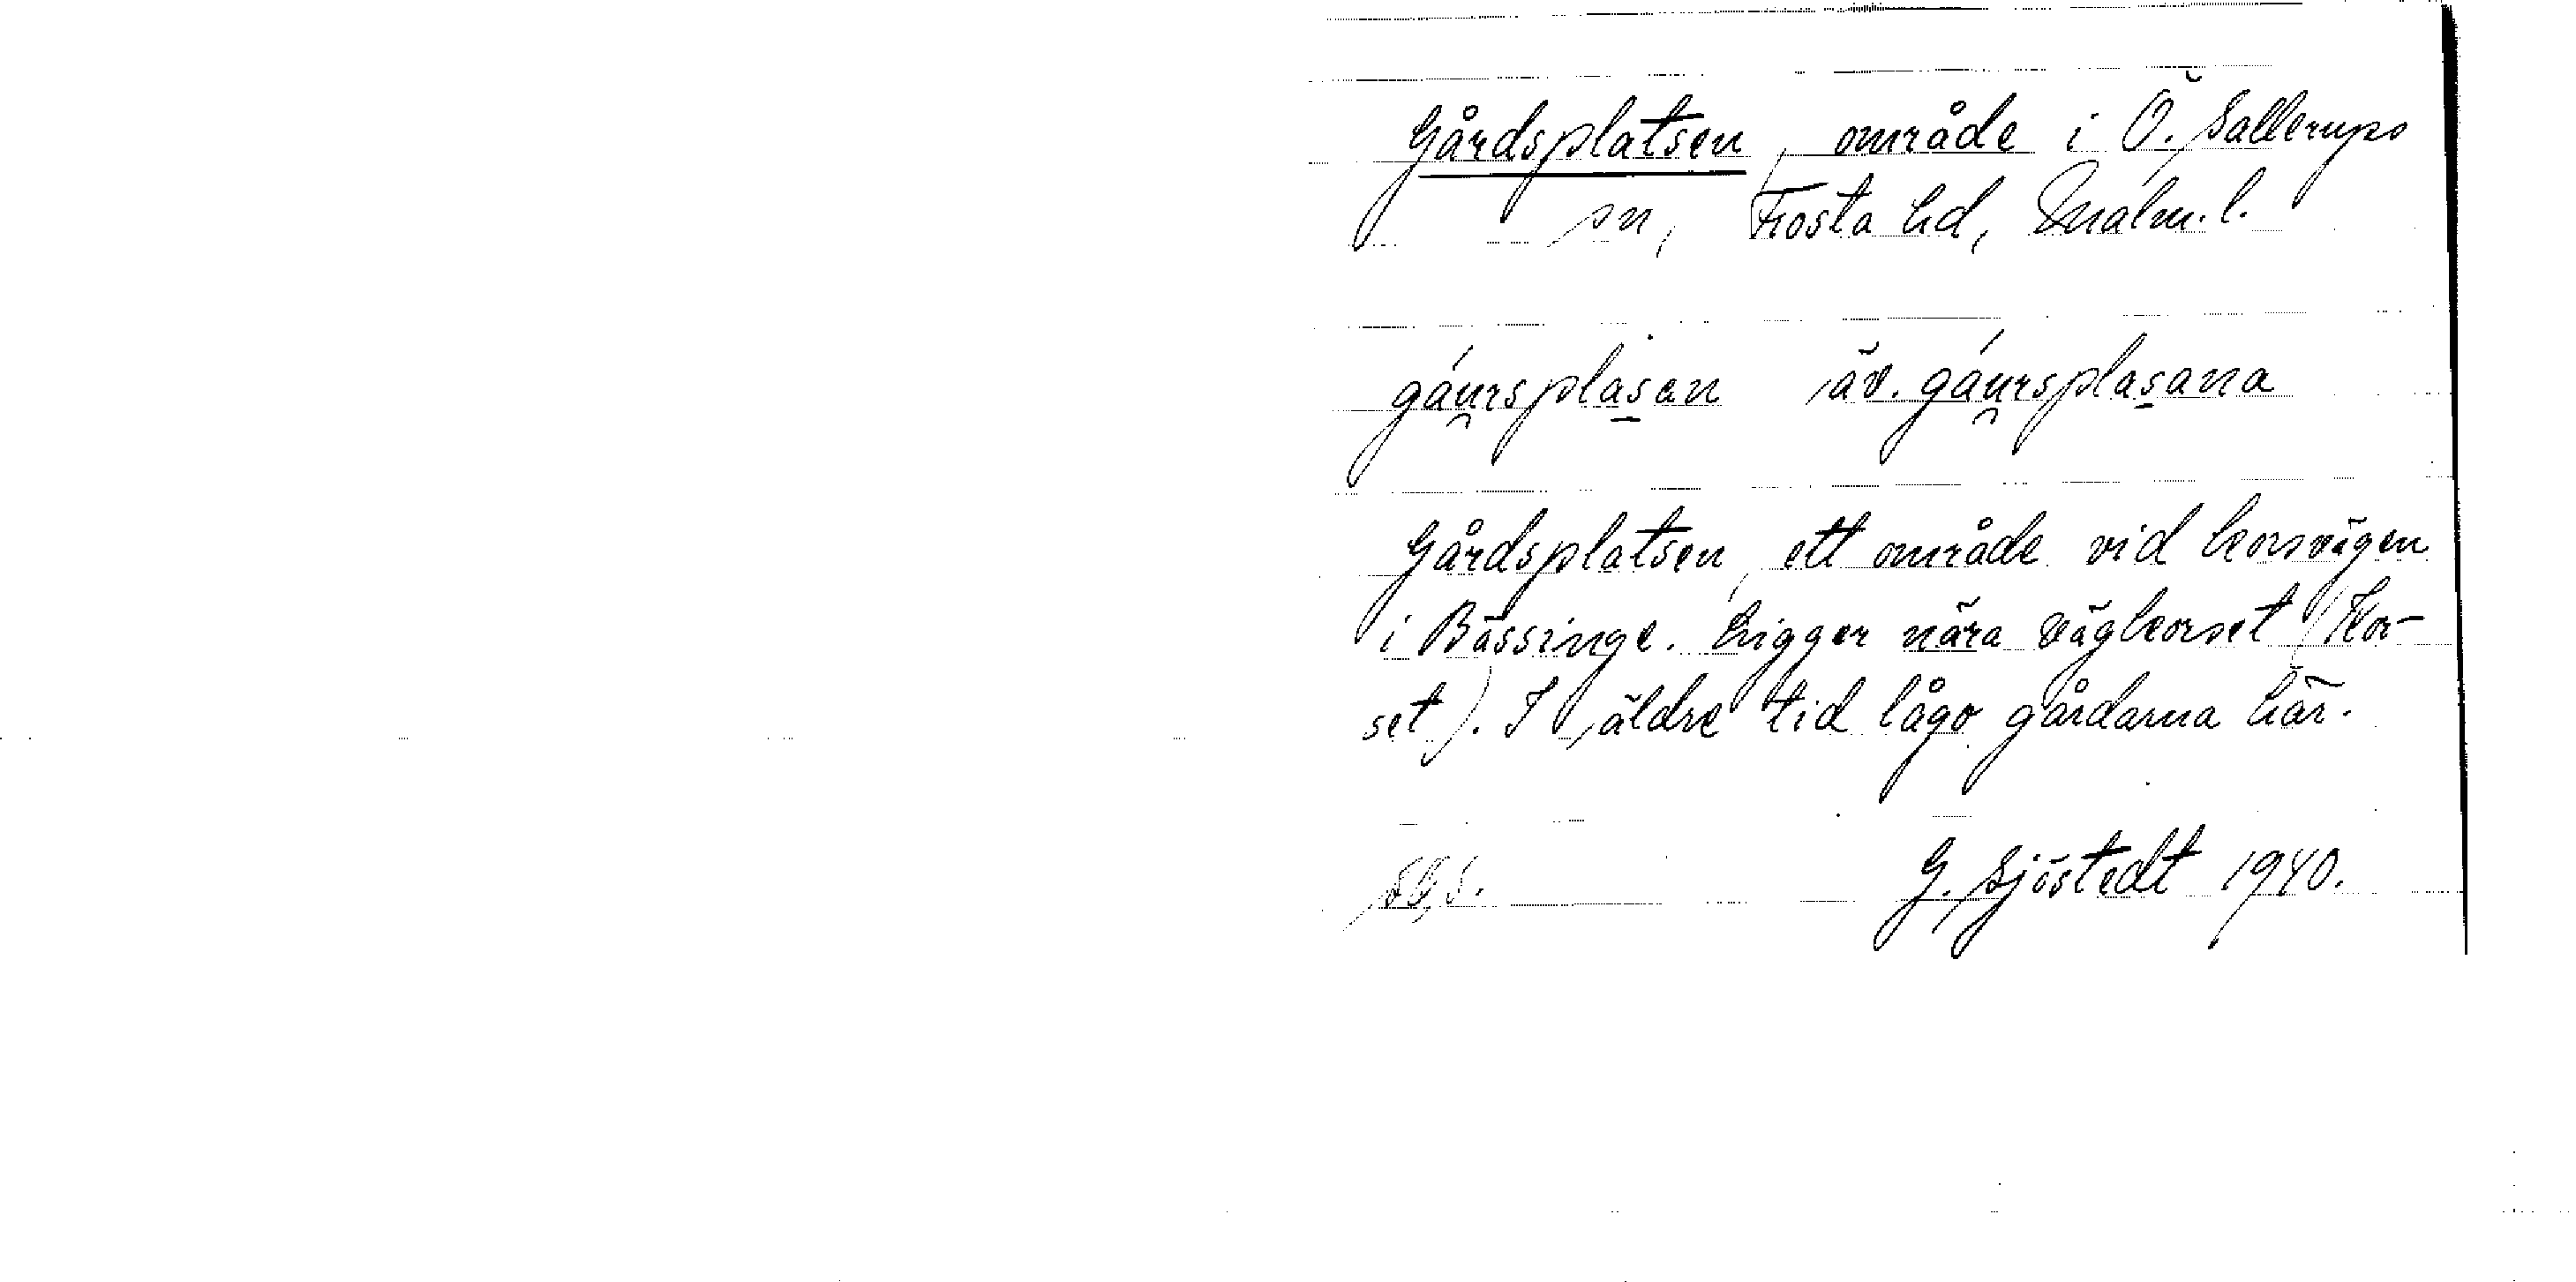 Gårdsplatsen, område i Ö. Sallerups
sn, Frosta hd, Malm. l.
gáu̯rsplasan äv. gáu̯rsplasana
Gårdsplatsen, ett område vid korsvägen
i Bässinge. Ligger nära vägkorset (Kor-
set). I äldre tid lågo gårdarna här.
G. Sjöstedt 1940.